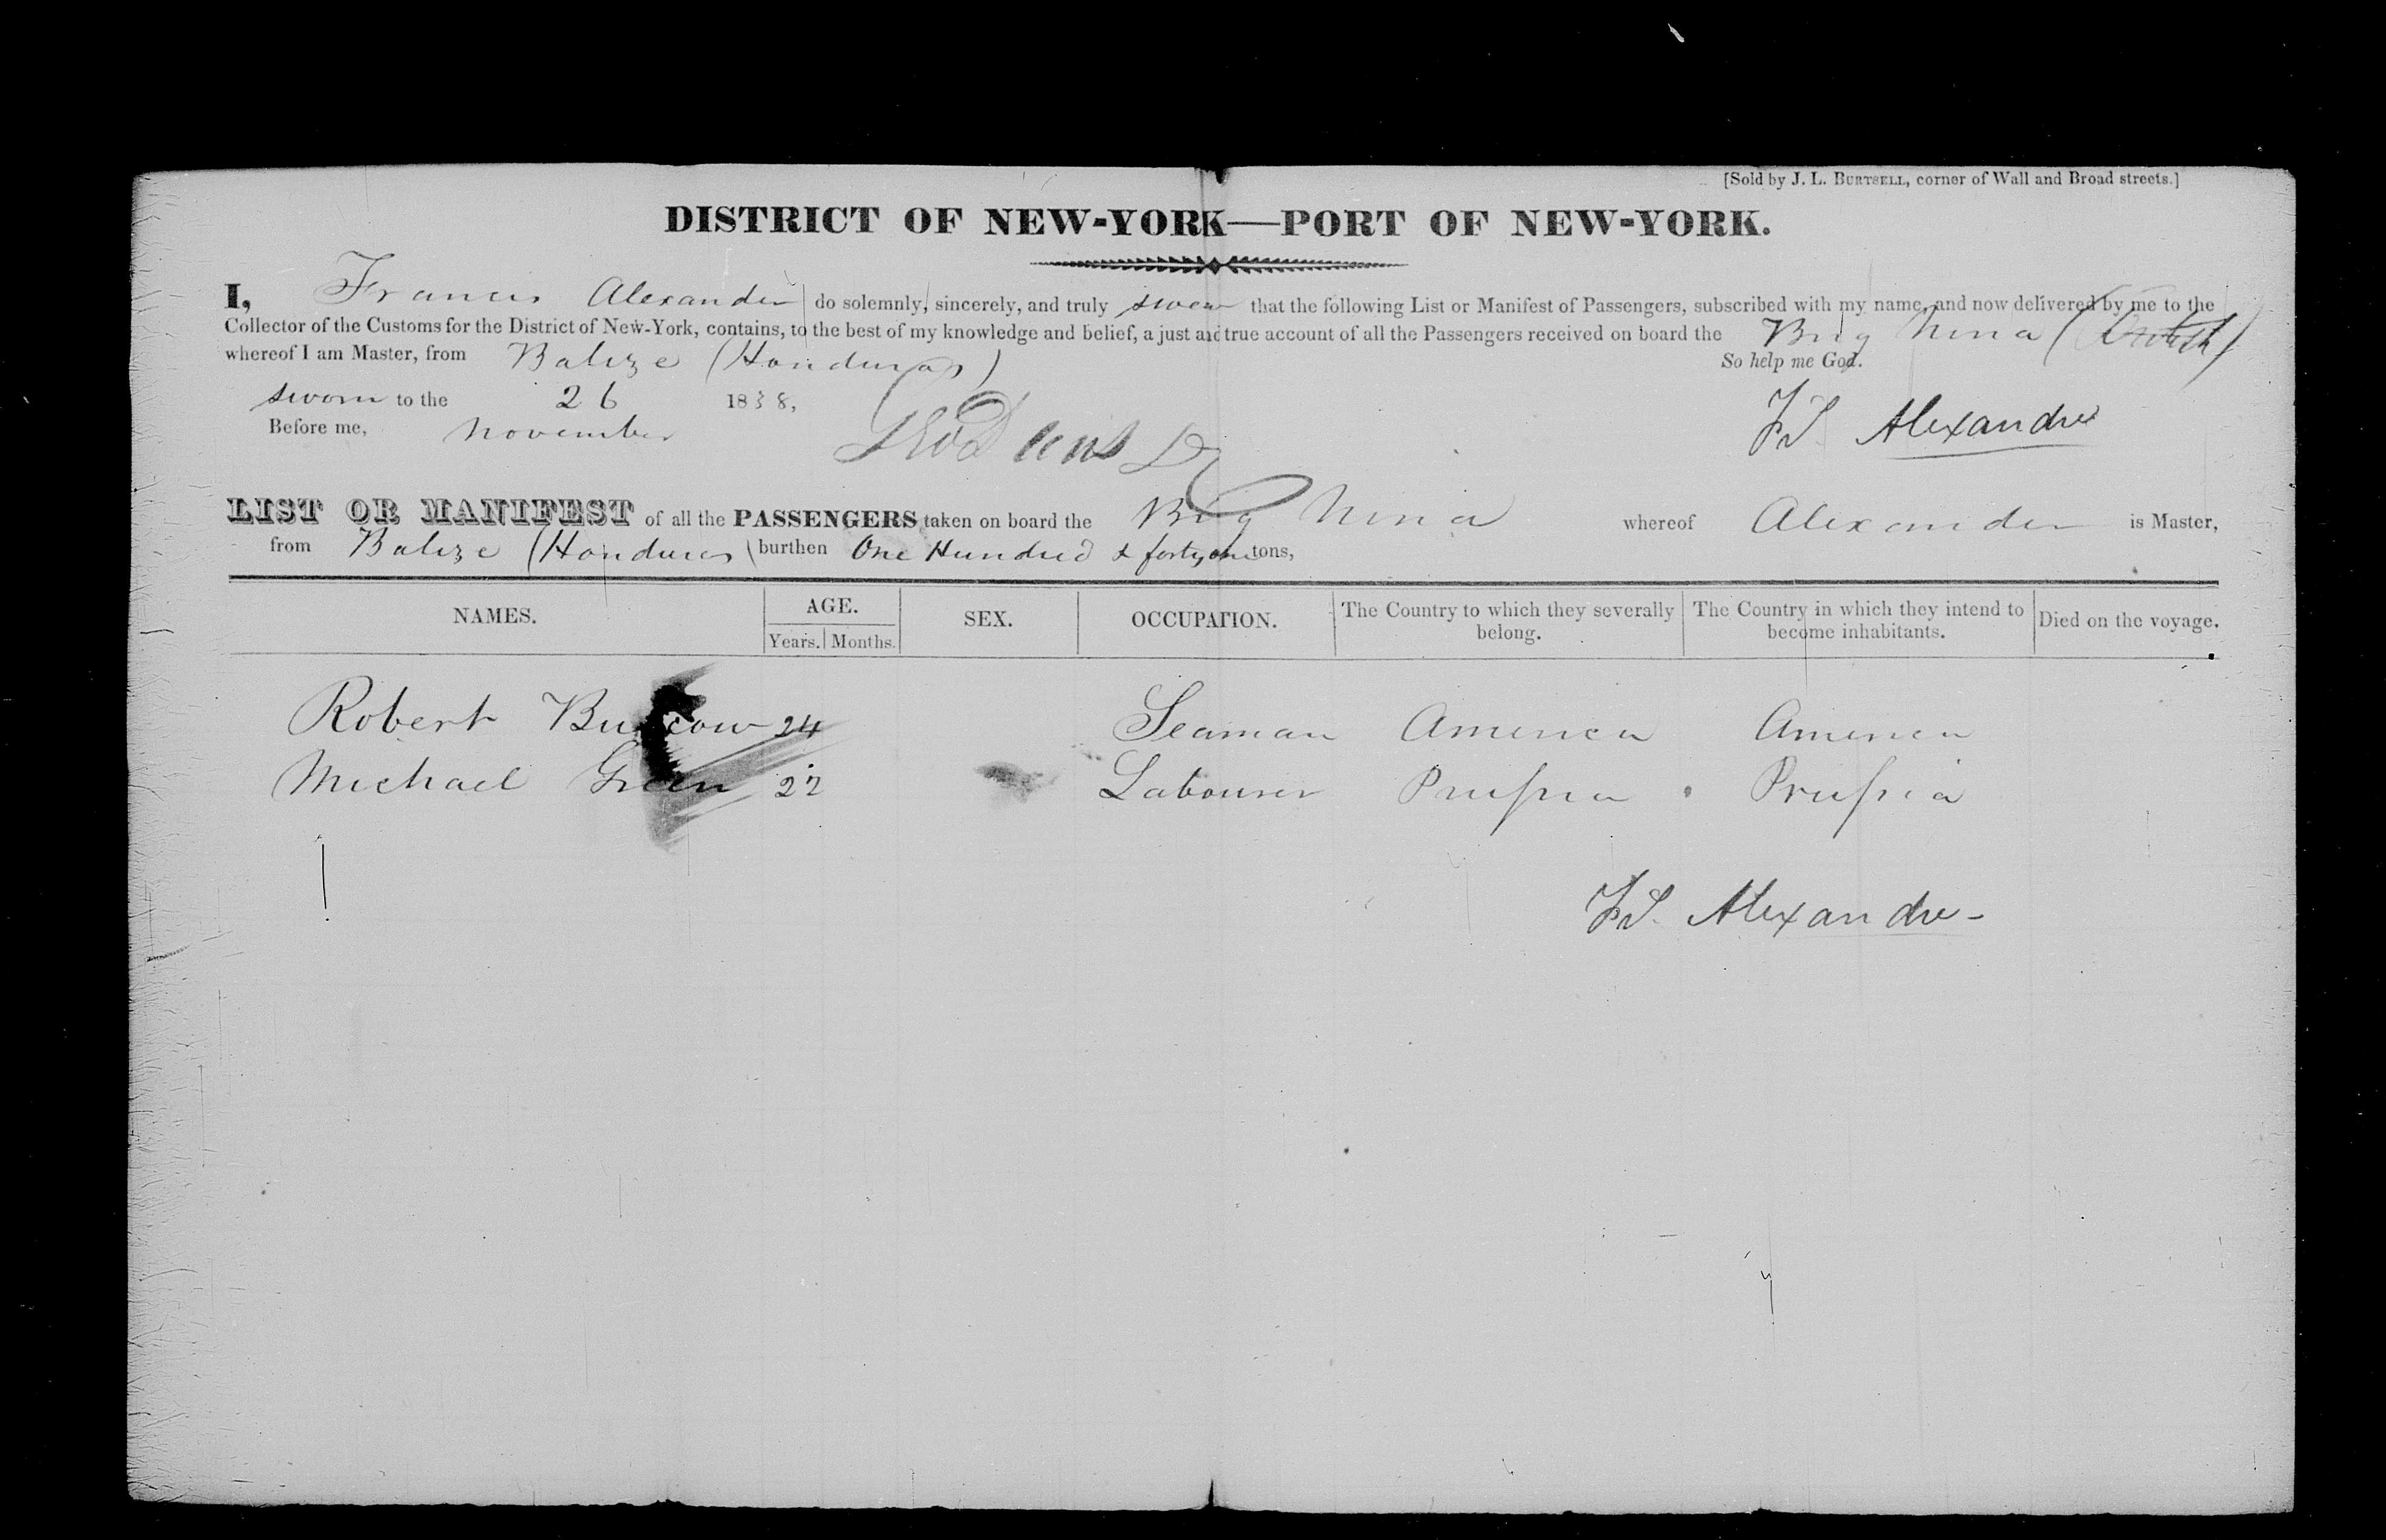 [Sold by J. L. BURTSELL, corner of Wall and Broad streets.]
DISTRICT OF NEW-YORK—PORT OF NEW-YORK.
I, Francis Alexander do solemnly, sincerely, and truly swear that the following List or Manifest of Passengers, subscribed with my name, and now delivered by me to the
Collector of the Customs for the District of New-York, contains, to the best of my knowledge and belief, a just and true account of all the Passengers received on board the Brig Nina (British)
whereof I am Master, from Balize (Honduras) So help me God.
sworn to the 26 1838,
Before me, November
Fs Alexandre
LIST OR MANIFEST of all the PASSENGERS taken on board the Brig Nina whereof Alexander is Master,
from Balize (Honduras) burthen One Hundred & forty one tons,
NAMES. AGE. Years. Months. SEX. OCCUPATION. The Country to which they severally belong. The Country in which they intend to become inhabitants. Died on the voyage.
Robert 24 Seaman America America
Michael Green 22 Labourer Prussia Prussia
Fs. Alexandre